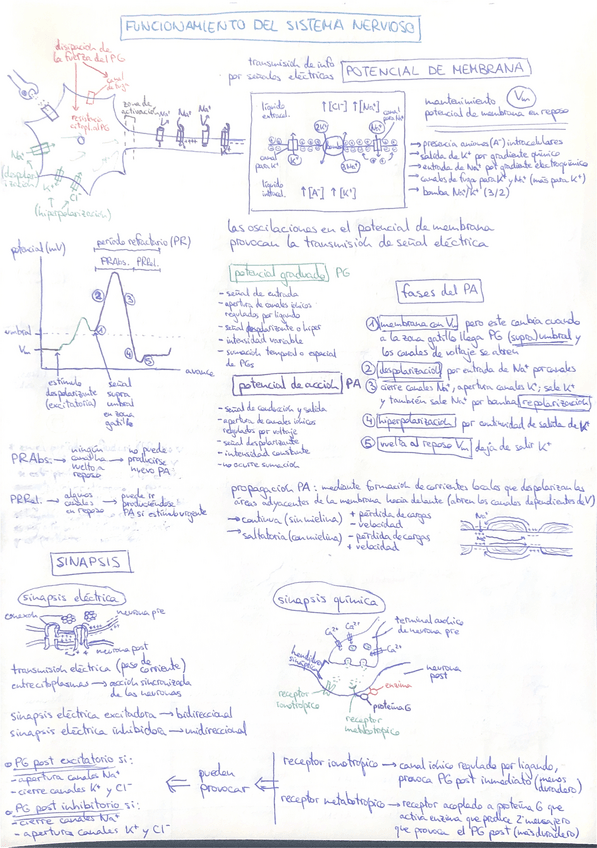 FUNCIONAMIENTO DEL SISTEMA NERVIOSO
disipación de
la fuerza del PG
canal
de fuga
resistencia
citopl. al PG
zona de
activación
Na+
Na+
Na+
Na+
Na+
(despolarización)
K+
Cl-
(hiperpolarización)
transmisión de info
por señales eléctricas
POTENCIAL DE MEMBRANA
líquido
extracel.
↑[Cl-] ↑[Na+]
canal
para Na+
2K+
Na+
bomba
canal
para K+
K+
3Na+
líquido
intracel.
↑[A-] ↑[K+]
mantenimiento Vm
potencial de membrana en reposo
→ presencia aniones (A-) intracelulares
→ salida de K+ por gradiente químico
→ entrada de Na+ por gradiente electroquímico
→ canales de fuga para K+ y Na+ (más para K+)
→ bomba Na+/K+ (3/2)
las oscilaciones en el potencial de membrana
provocan la transmisión de señal eléctrica
potencial (mV)
período refractario (PR)
PRAbs. PRRel.
umbral
Vm
① ② ③ ④ ⑤
avance
estímulo
despolarizante
(excitatorio)
señal
supra
umbral
en zona
gatillo
PRAbs. → ningún canal ha vuelto a reposo → no puede producirse nuevo PA
PRRel. → algunos canales en reposo → puede ir produciéndose PA si estímulo urgente
potencial graduado PG
- señal de entrada
- apertura de canales iónicos
regulados por ligando
- señal despolarizante o hiper
- intensidad variable
- sumación temporal o espacial
de PGs
potencial de acción PA
- señal de conducción y salida
- apertura de canales iónicos
regulados por voltaje
- señal despolarizante
- intensidad constante
- no ocurre sumación
fases del PA
① membrana con Vm pero este cambia cuando
a la zona gatillo llega PG (supra)umbral y
los canales de voltaje se abren
② despolarización por entrada de Na+ por canales
③ cierre canales Na+, apertura canales K+; sale K+
y también sale Na+ por bomba repolarización
④ hiperpolarización por continuidad de salida de K+
⑤ vuelta al reposo Vm deja de salir K+
propagación PA: mediante formación de corrientes locales que despolarizan las
áreas adyacentes de la membrana hacia delante (abren los canales dependientes de V)
→ continua (sin mielina) + pérdida de cargas
- velocidad
→ saltatoria (con mielina) - pérdida de cargas
+ velocidad
Na+
SINAPSIS
sinapsis eléctrica
conexón
neurona pre
neurona post
transmisión eléctrica (paso de
corriente)
entre citoplasmas → acción sincronizada
de las neuronas
sinapsis eléctrica excitadora → bidireccional
sinapsis eléctrica inhibidora → unidireccional
sinapsis química
Ca2+
Ca2+
Ca2+
terminal axónico
de neurona pre
hendidura
sináptica
neurona
post
enzima
proteína G
receptor
ionotrópico
receptor
metabotrópico
PG post excitatorio si:
- apertura canales Na+
- cierre canales K+ y Cl-
PG post inhibitorio si:
- cierre canales Na+
- apertura canales K+ y Cl-
⇐ pueden
provocar ⇐
receptor ionotrópico → canal iónico regulado por ligando,
provoca PG post inmediato (menos
duradero)
receptor metabotrópico → receptor acoplado a proteína G que
activa enzima que produce 2º mensajero
que provoca el PG post (más duradero)